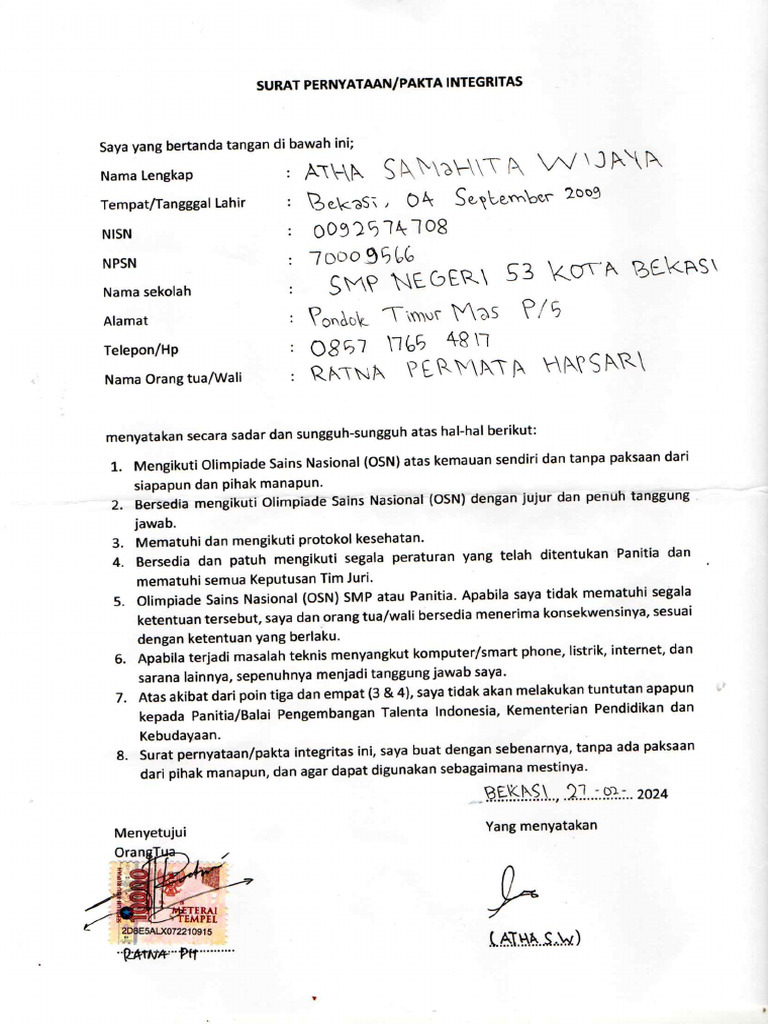 SURAT PERNYATAAN/PAKTA INTEGRITAS
Saya yang bertanda tangan di bawah ini;
Nama Lengkap : ATHA SAMAHITA WIJAYA
Tempat/Tangggal Lahir : Bekasi, 04 September 2009
NISN : 0092574708
NPSN : 70009566
Nama sekolah : SMP NEGERI 53 KOTA BEKASI
Alamat : Pondok Timur Mas P/5
Telepon/Hp : 0857 1765 4817
Nama Orang tua/Wali : RATNA PERMATA HAPSARI
menyatakan secara sadar dan sungguh-sungguh atas hal-hal berikut:
1. Mengikuti Olimpiade Sains Nasional (OSN) atas kemauan sendiri dan tanpa paksaan dari
siapapun dan pihak manapun.
2. Bersedia mengikuti Olimpiade Sains Nasional (OSN) dengan jujur dan penuh tanggung
jawab.
3. Mematuhi dan mengikuti protokol kesehatan.
4. Bersedia dan patuh mengikuti segala peraturan yang telah ditentukan Panitia dan
mematuhi semua Keputusan Tim Juri.
5. Olimpiade Sains Nasional (OSN) SMP atau Panitia. Apabila saya tidak mematuhi segala
ketentuan tersebut, saya dan orang tua/wali bersedia menerima konsekwensinya, sesuai
dengan ketentuan yang berlaku.
6. Apabila terjadi masalah teknis menyangkut komputer/smart phone, listrik, internet, dan
sarana lainnya, sepenuhnya menjadi tanggung jawab saya.
7. Atas akibat dari poin tiga dan empat (3 & 4), saya tidak akan melakukan tuntutan apapun
kepada Panitia/Balai Pengembangan Talenta Indonesia, Kementerian Pendidikan dan
Kebudayaan.
8. Surat pernyataan/pakta integritas ini, saya buat dengan sebenarnya, tanpa ada paksaan
dari pihak manapun, dan agar dapat digunakan sebagaimana mestinya.
BEKASI, 27-02- 2024
Menyetujui
OrangTua
Yang menyatakan
10000
METERAI
TEMPEL
2D8E5ALX072210915
RATNA PH
(ATHA S.W)